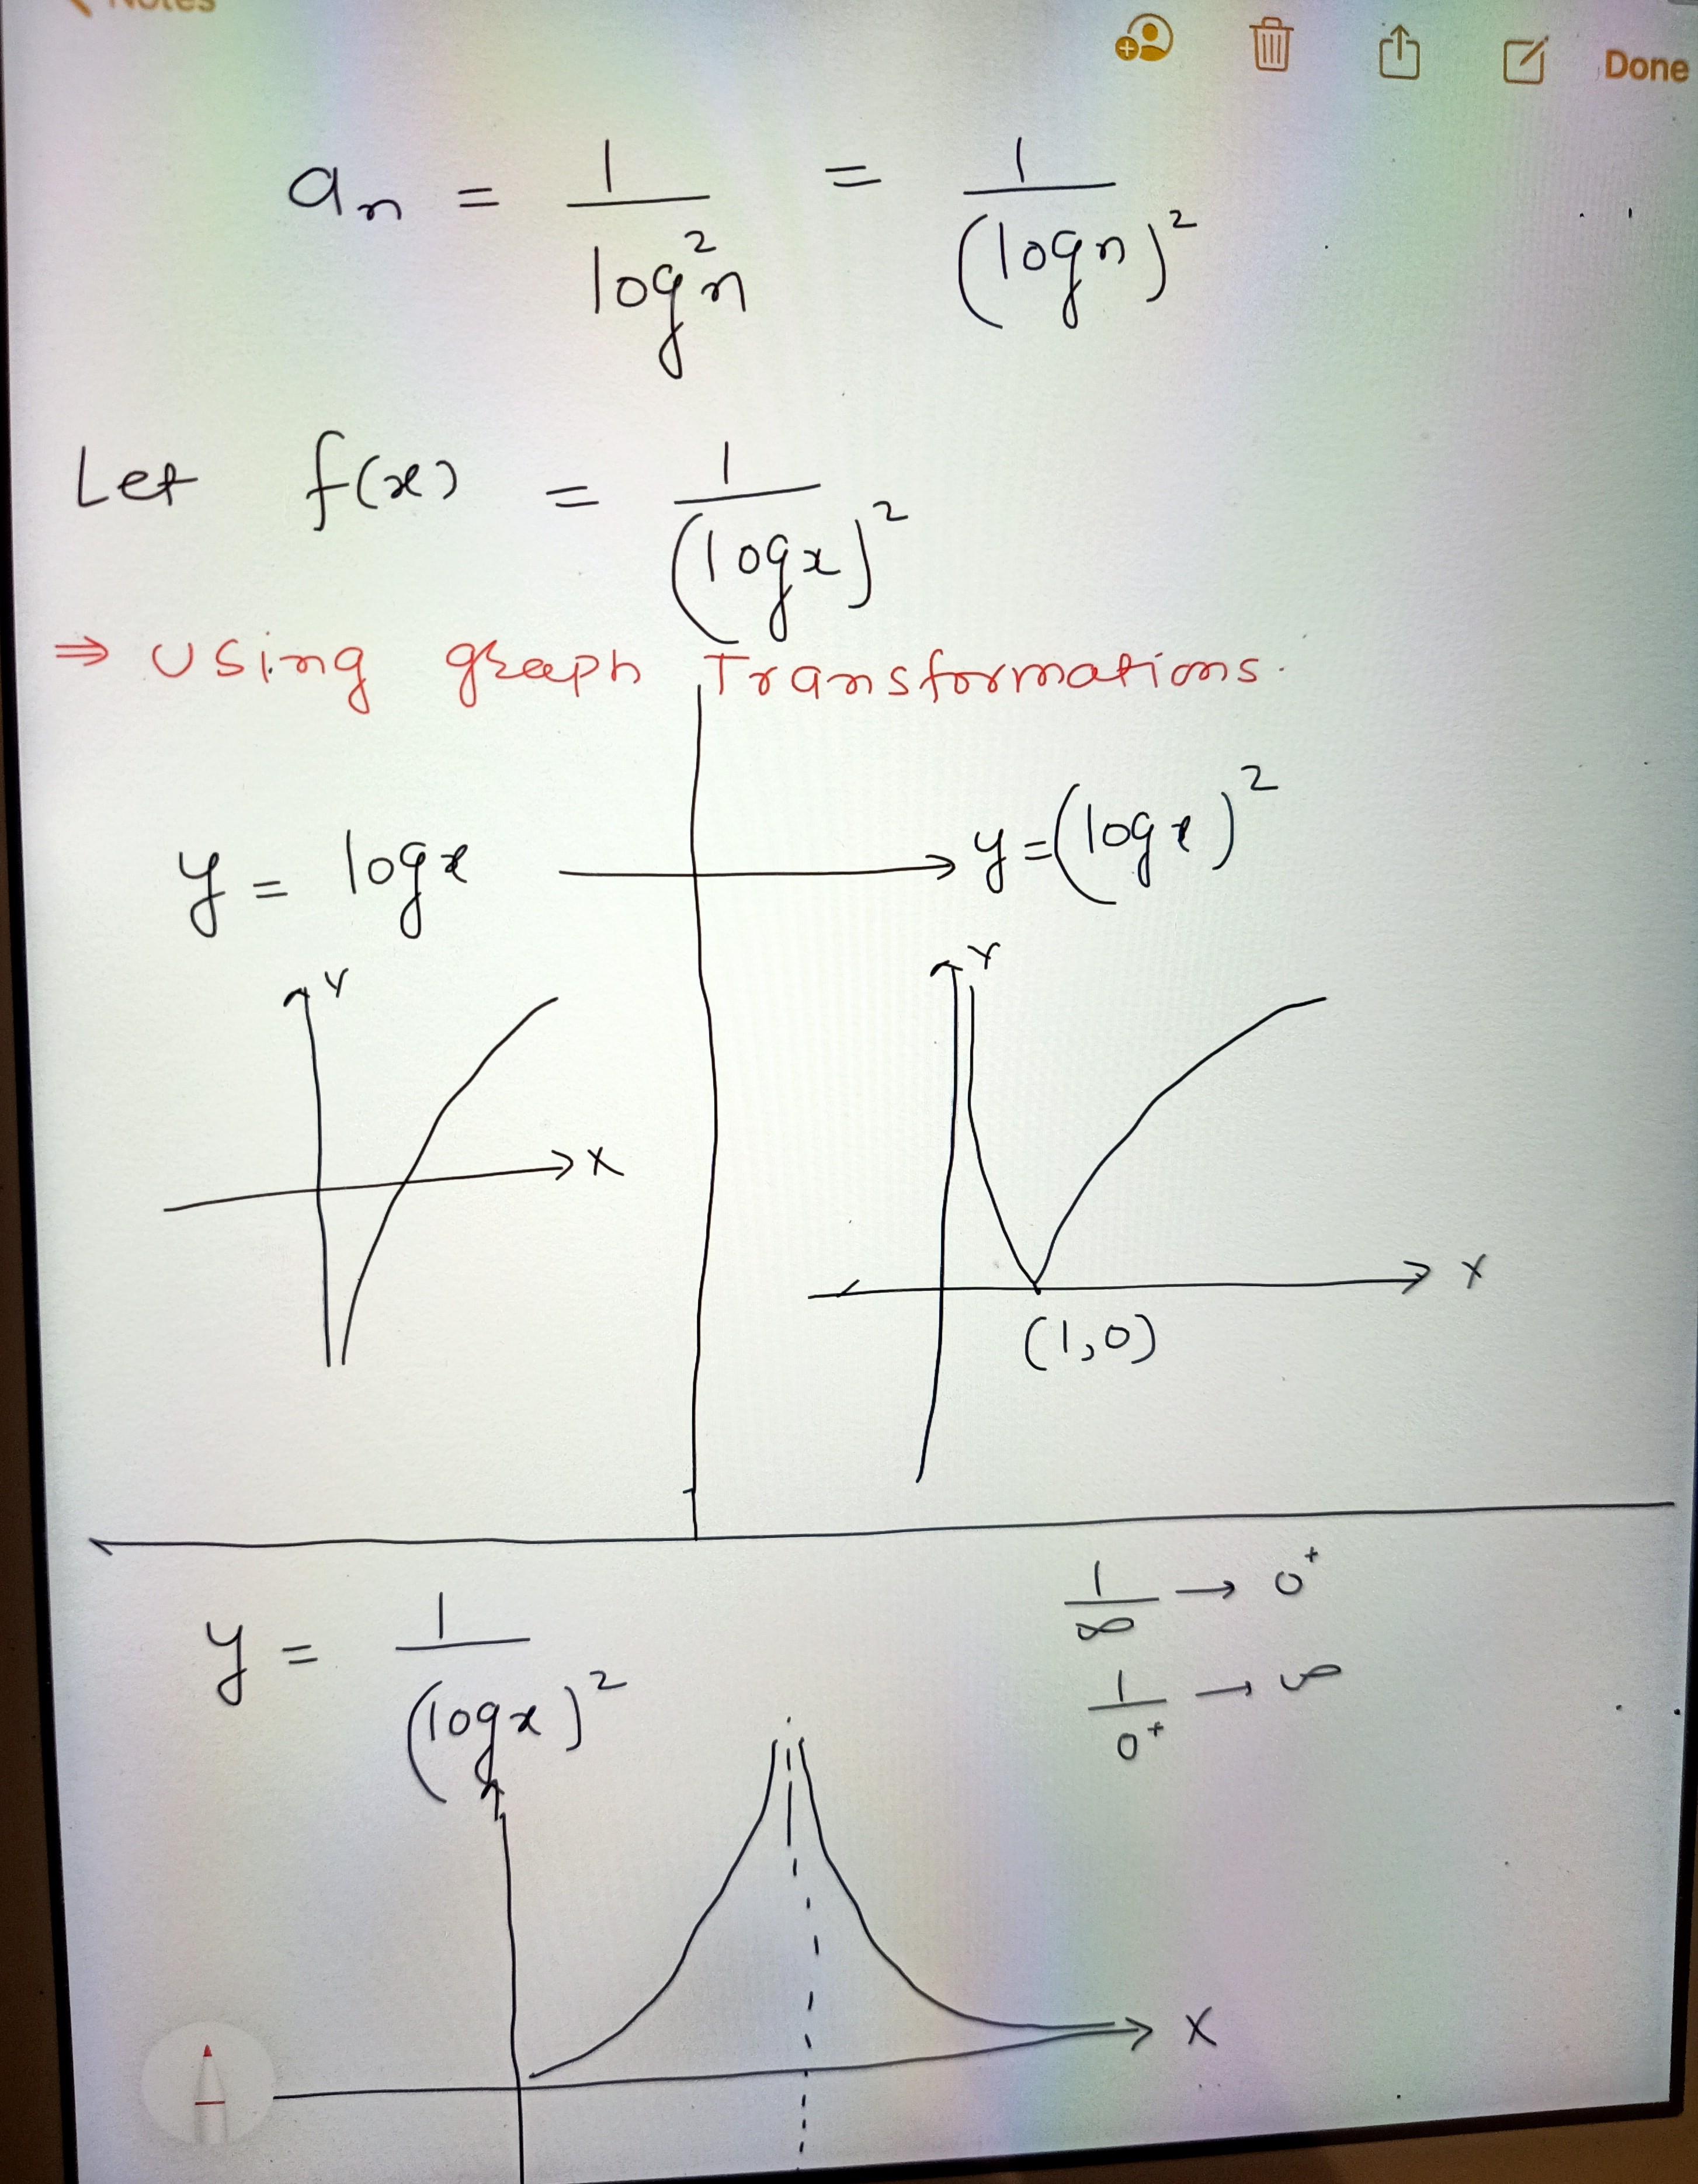 Notes
Done
aₙ = 1/log²n = 1/(logn)²
Let f(x) = 1/(logx)²
⇒ Using graph Transformations.
y = logx → y=(logx)²
Y
Y
X
X
(1,0)
1/∞ → 0⁺
y = 1/(logx)²
1/0⁺ → ∞
X